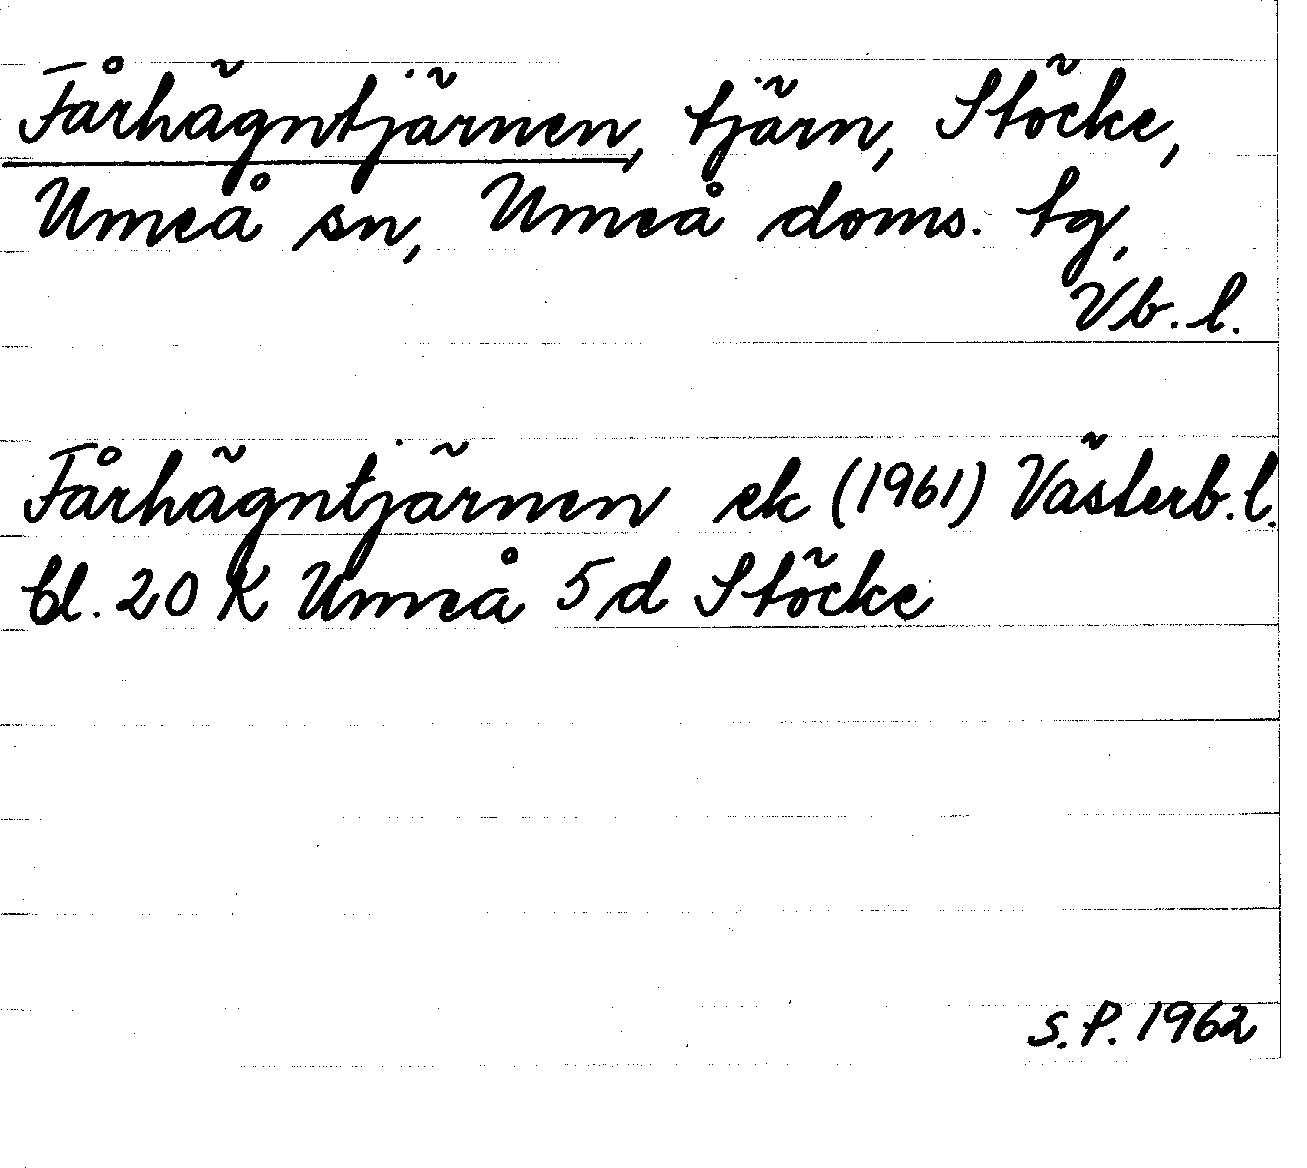 Fårhägntjärnen, tjärn, Stöcke,
Umeå sn, Umeå doms. tg,
Vb. l.
Fårhägntjärnen ek (1961) Västerb. l.
bl. 20 K Umeå 5 d Stöcke
S. P. 1962